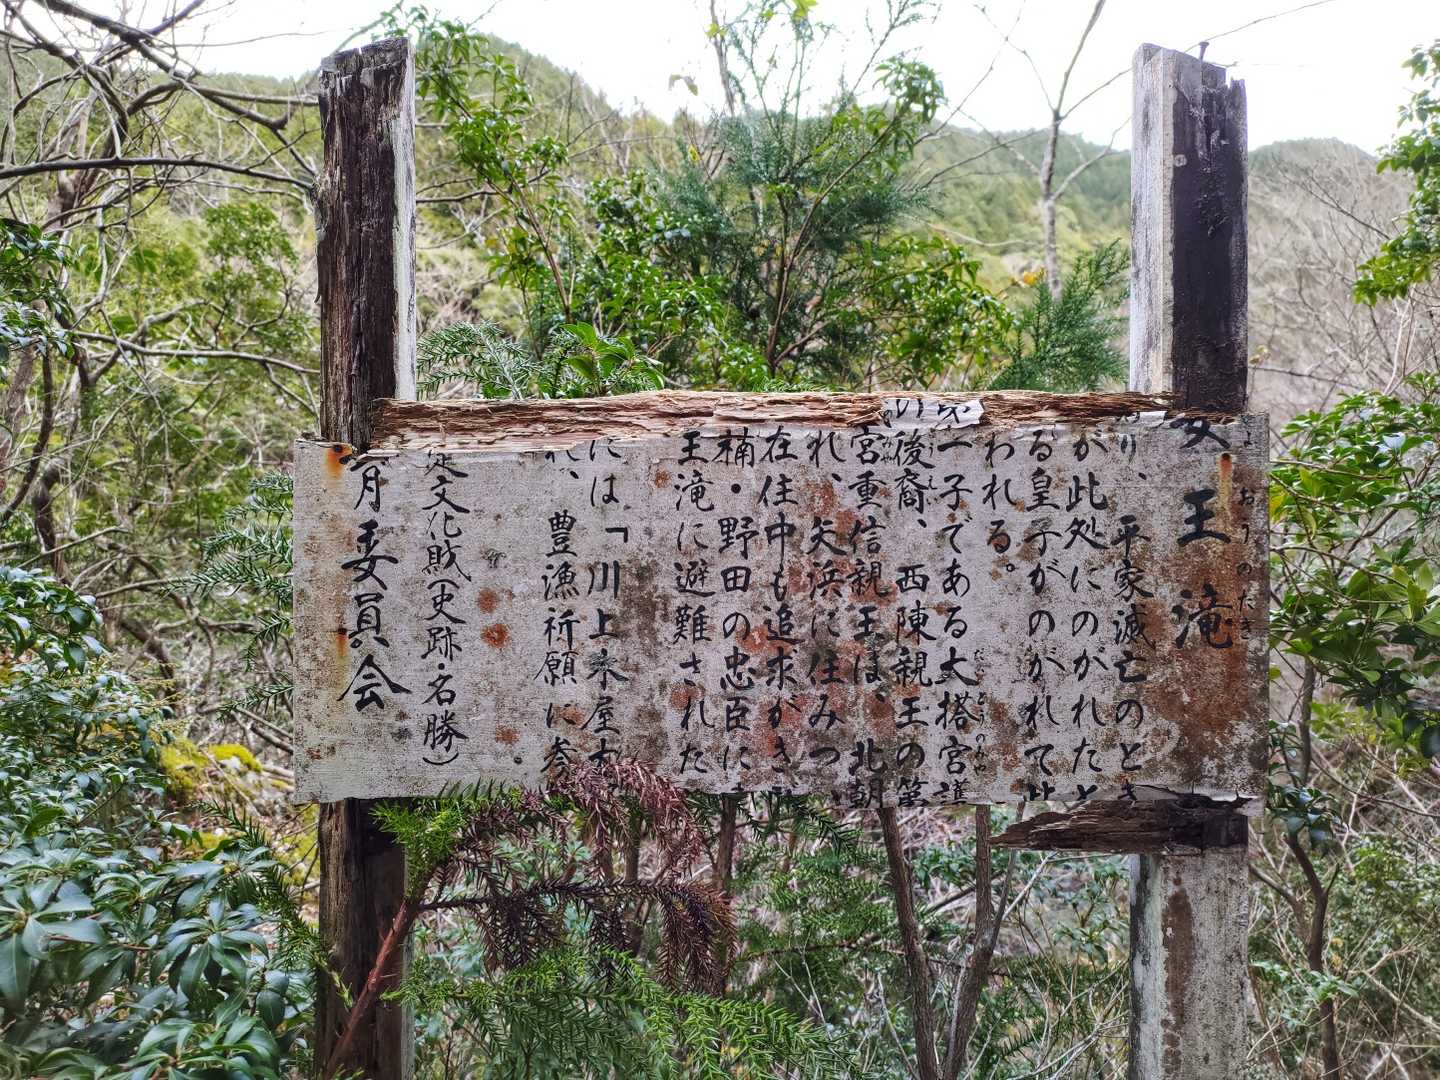 王滝
おうのたき
り、平家滅亡のとき
が此処にのがれたと
る皇子がのがれて
われる。
一子である大塔宮護
の後裔、西陳親王の第
宮重信親王は、北朝
れ、矢浜に住みつ
在住中も追求がき
楠・野田の忠臣に
王滝に避難された
には「川上水屋大
れ、豊漁祈願に参
定文化財(史跡名勝)
育委員会